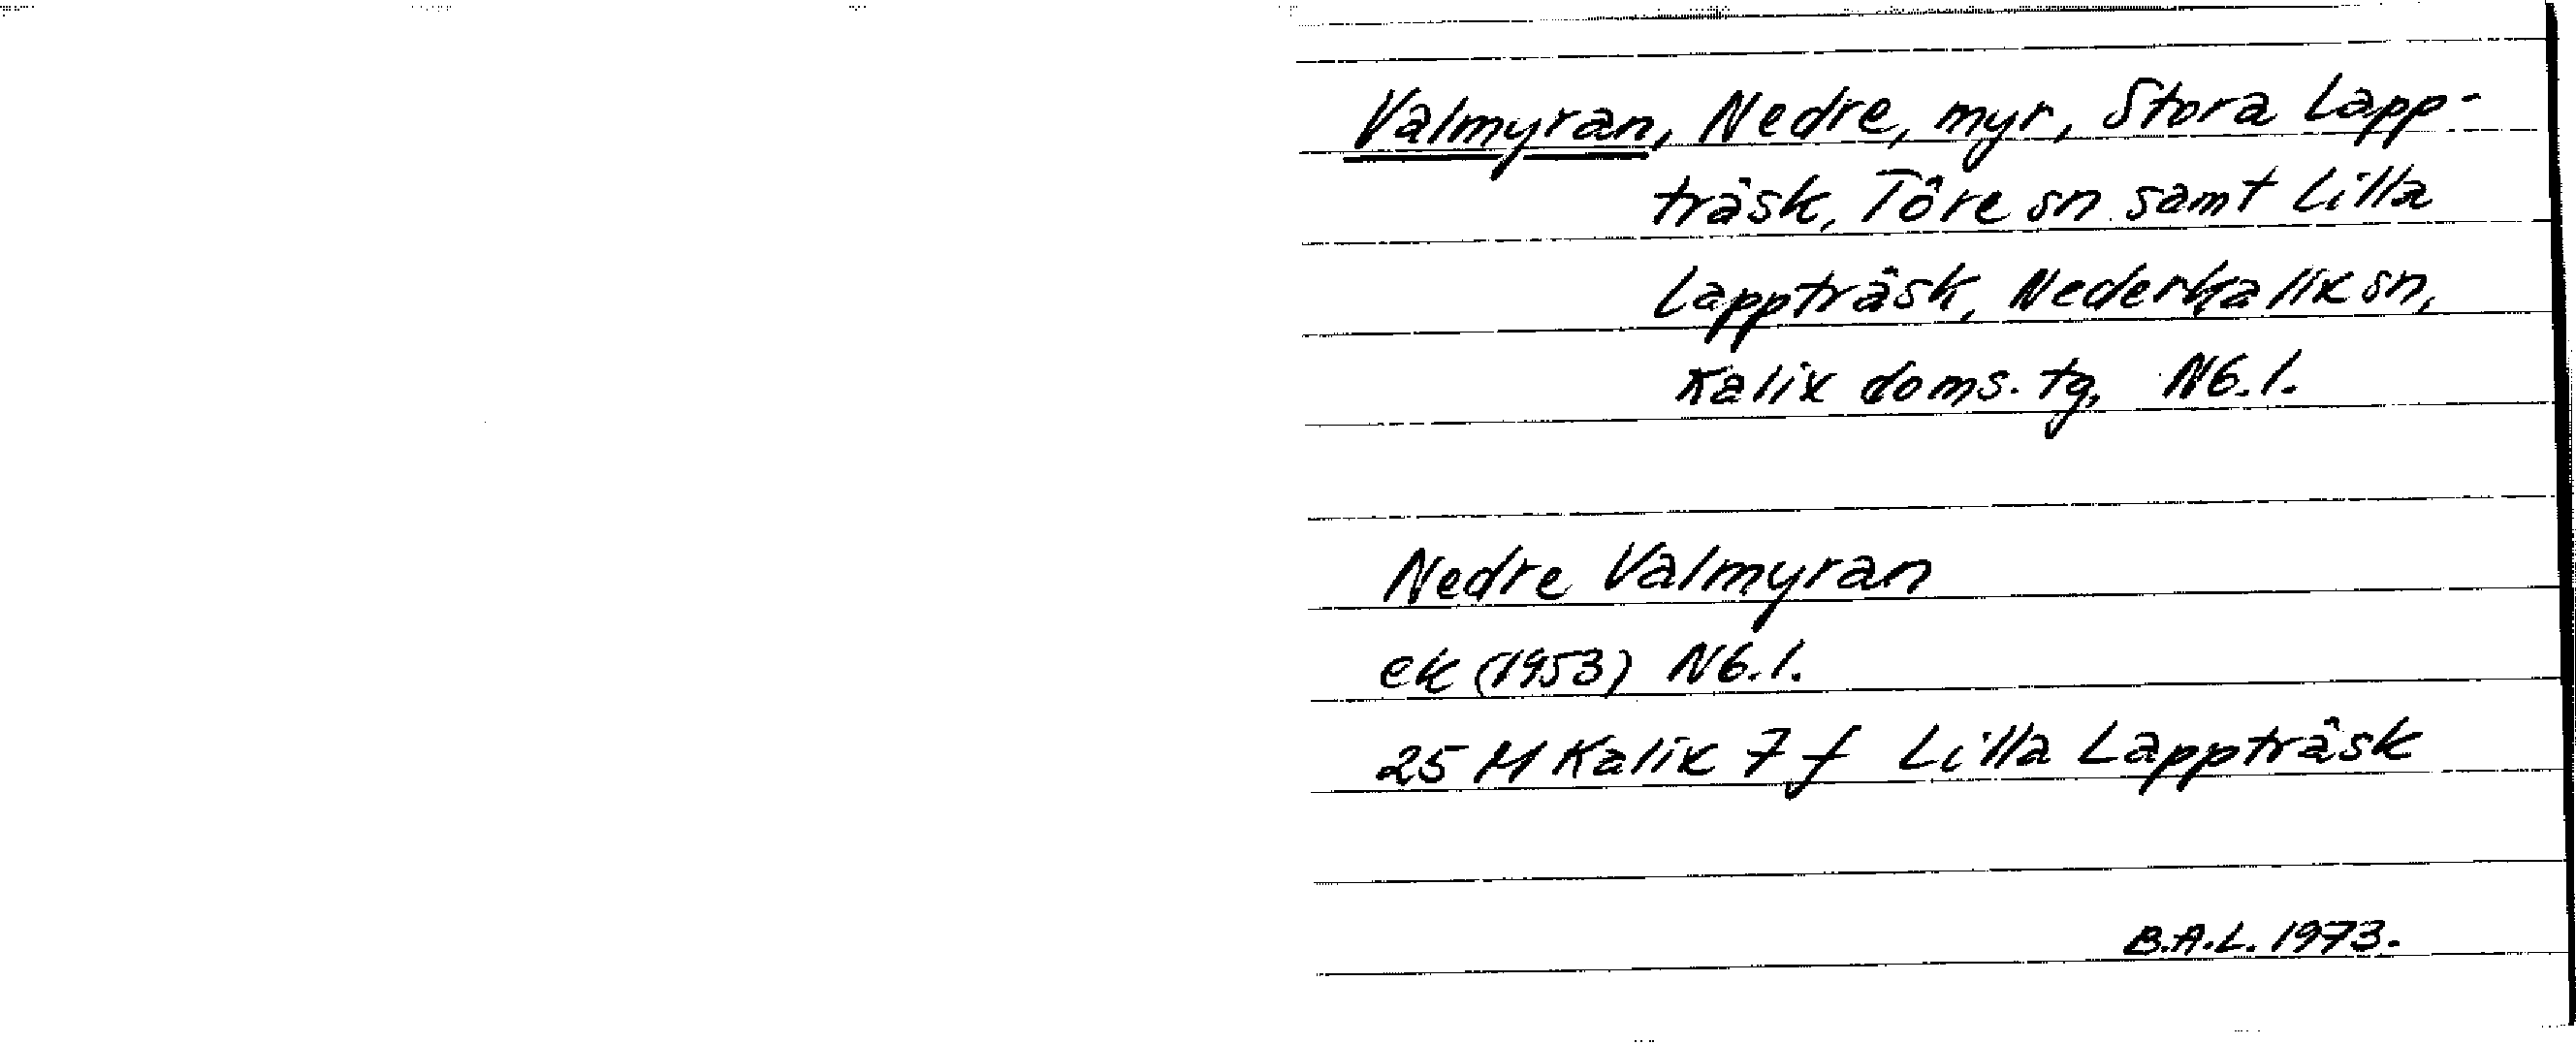 Valmyran, Nedre, myr, Stora Lapp-
träsk, Töre sn samt Lilla
Lappträsk, Nederkalix sn,
Kalix doms. tg, Nb.l.
Nedre Valmyran
ek (1953) Nb.l.
25 M Kalix 7 f Lilla Lappträsk
B.A.L. 1973.